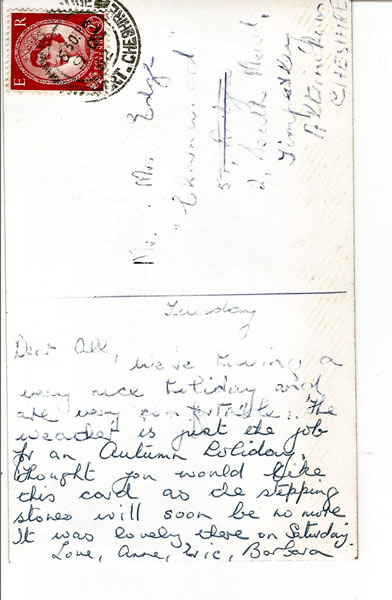 E R
Mr. Mrs. Edge
2,
Timperley
Altrincham
CHESHIRE
Tuesday
Dear All,
we're having a
very nice holiday and
are very comfortable. The
weather is just the job
for an Autumn Holiday,
thought you would like
this card as the stepping
stones will soon be no more
It was lovely there on Saturday.
Love, Anne, Eric, Barbara